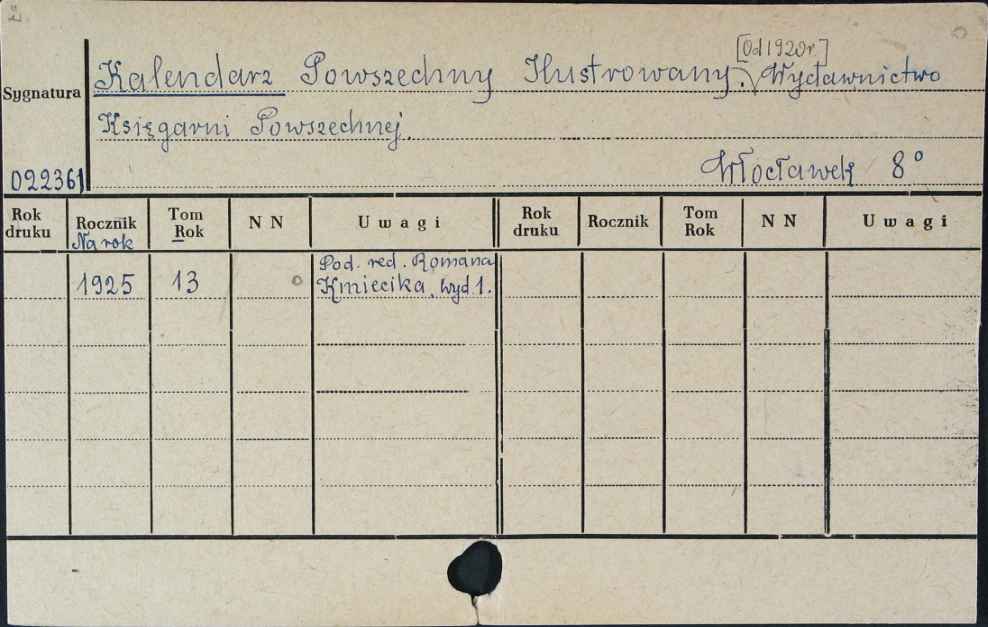 [Od 1920r.]
Kalendarz Powszechny Ilustrowany. Wydawnictwo
Sygnatura
Księgarni Powszechnej.
022361
Włocławek 8°
Rok druku Rocznik Tom Rok N N Uwagi Rok druku Rocznik Tom Rok N N Uwagi
Na rok
1925 13 Pod. red. Romana
Kmiecika, wyd. 1.